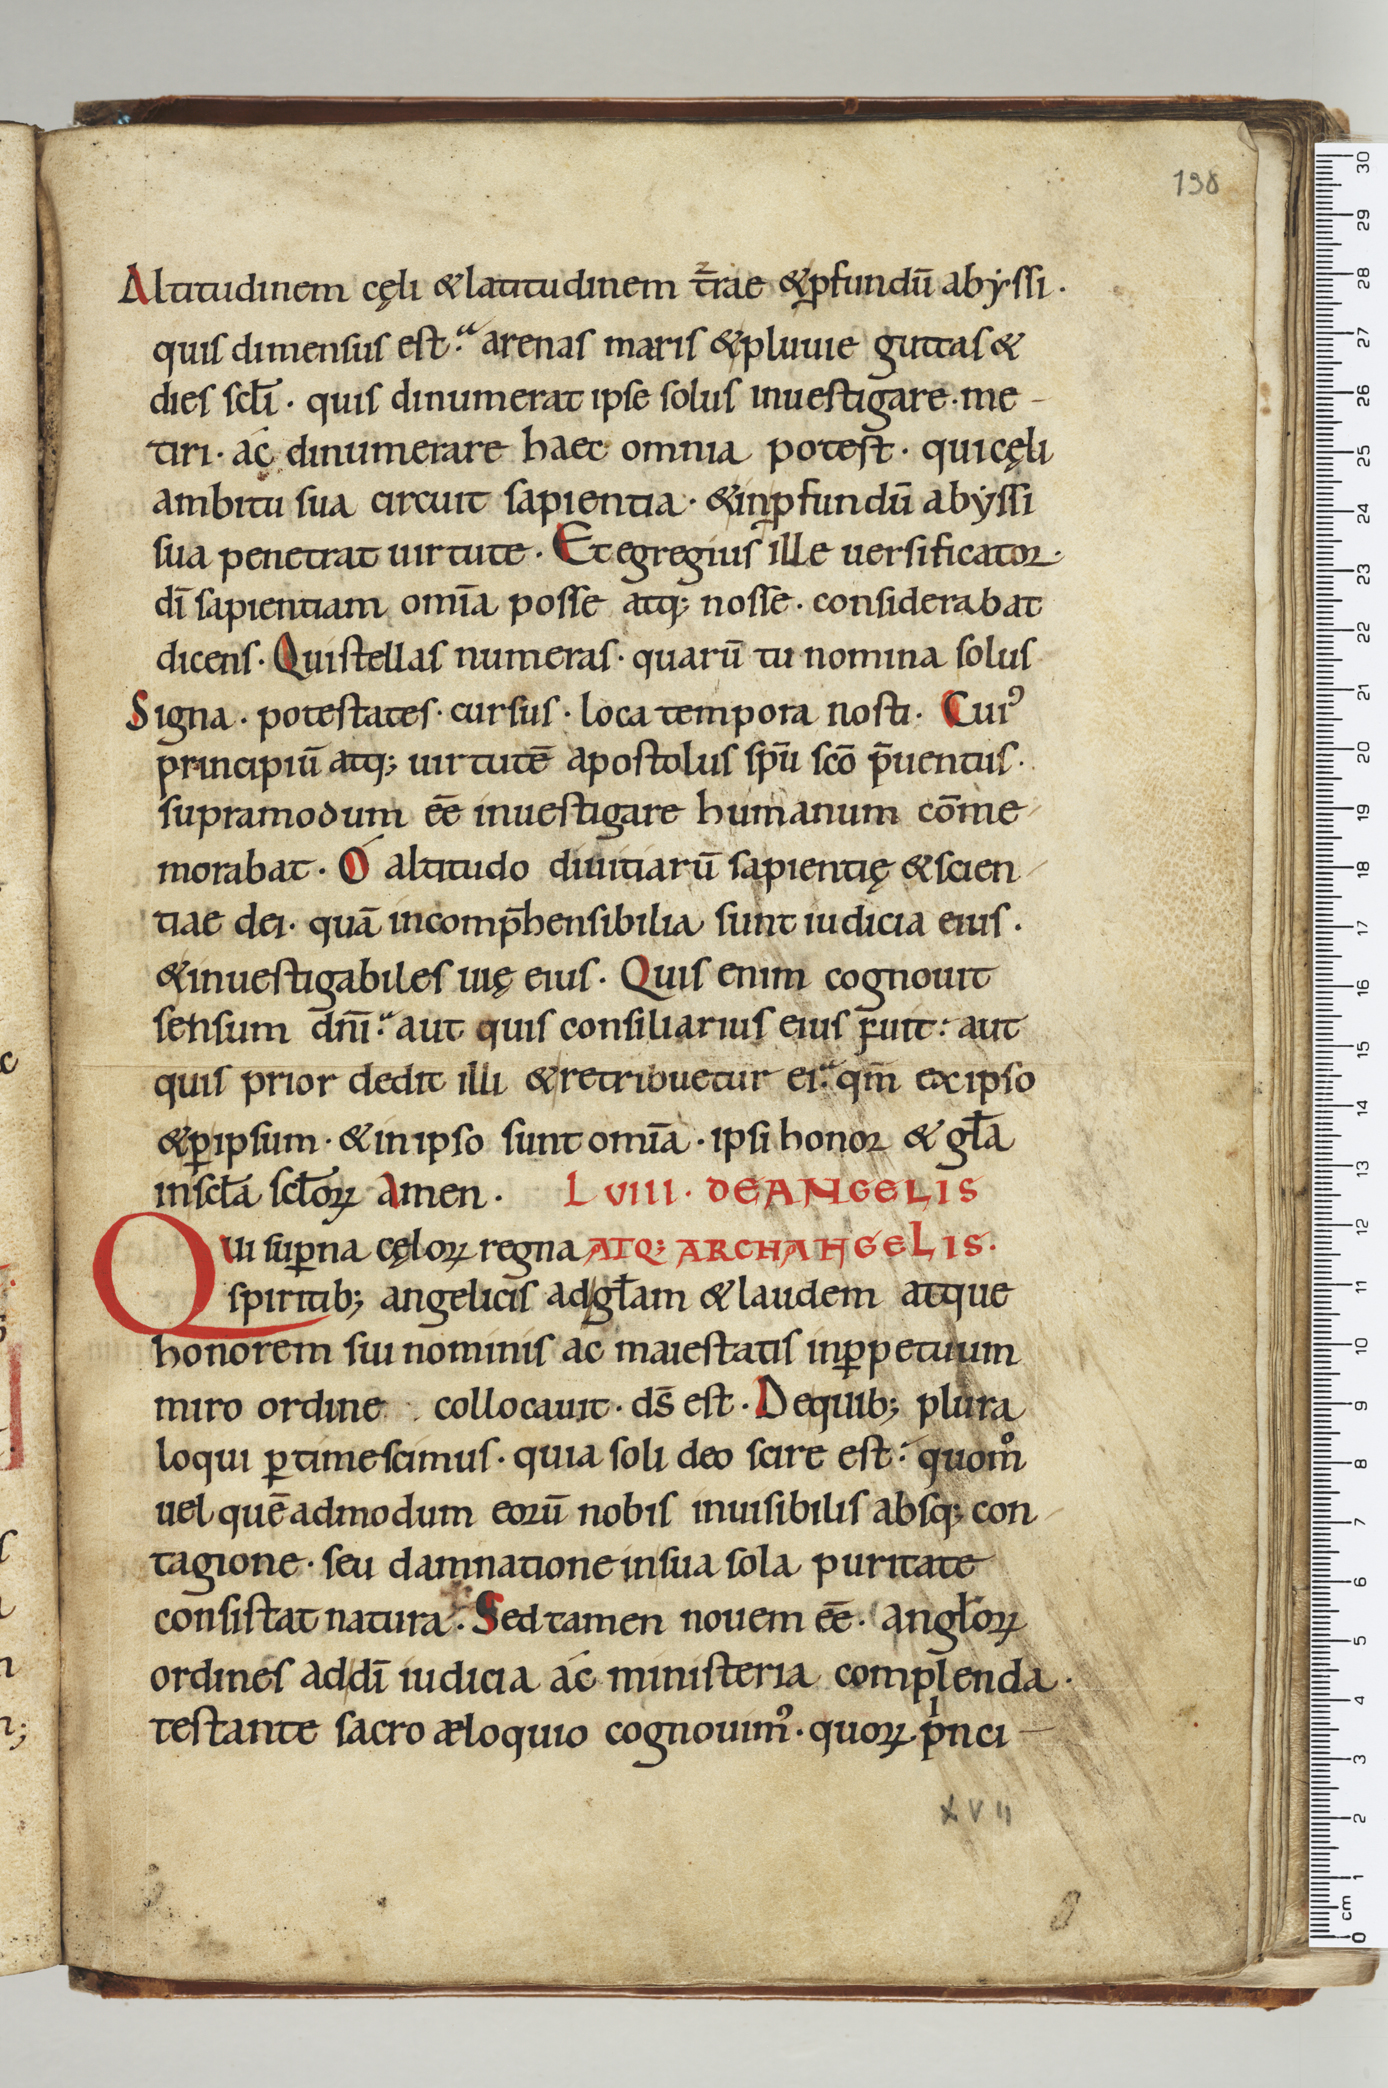 138
Altitudinem cęli & latitudinem t̄rae & ꝓfundū abẏssi ·
quis dimensus est? arenas maris & pluuie guttas &
dies sclī · quis dinumerat ipse solus inuestigare · me-
tiri · ac dinumerare haec omnia potest · qui cęli
ambitu sua circuit sapientia · & in ꝓfundū abẏssi
sua penetrat uirtute · Et egregius ille uersificator ·
dī sapientiam om̄ia posse atq; nosse · considerabat
dicens · Qui stellas numeras · quarū tu nomina solus
Signa · potestates · cursus · loca tempora nosti · Cuiꝰ
principiū atq; uirtutē apostolus sp̄u scō p̄uentus ·
supra modum ēē inuestigare humanum cōme-
morabat · O altitudo diuitiarū sapientię & scien-
tiae dei · quā incomp̄hensibilia sunt iudicia eius ·
& inuestigabiles uię eius · Quis enim cognouit
sensum dn̄i? aut quis consiliarius eius fuit? aut
quis prior dedit illi & retribuetur ei? qm̄ ex ipso
& ꝑ ipsum · & in ipso sunt om̄ia · ipsi honor & gl̄a
in scl̄a scl̄oꝝ amen · LVIII · DE ANGELIS
Qui suꝑna cęloꝝ regna ATQ; ARCHANGELIS ·
spiritib; angelicis ad gl̄am & laudem atque
honorem sui nominis ac maiestatis in ꝑpetuum
miro ordine collocauit · ds̄ est · De quib; plura
loqui ꝑtimescimus · quia soli deo scire est · quom̊
uel quēadmodum eorū nobis inuisibilis absq; con-
tagione · seu damnatione in sua sola puritate
consistat natura · Sed tamen nouem ēē · angl̄oꝝ
ordines ad dī iudicia ac ministeria compl̄enda ·
testante sacro æloquio cognouimꝰ · quoꝝ pⁱnci-
XVII